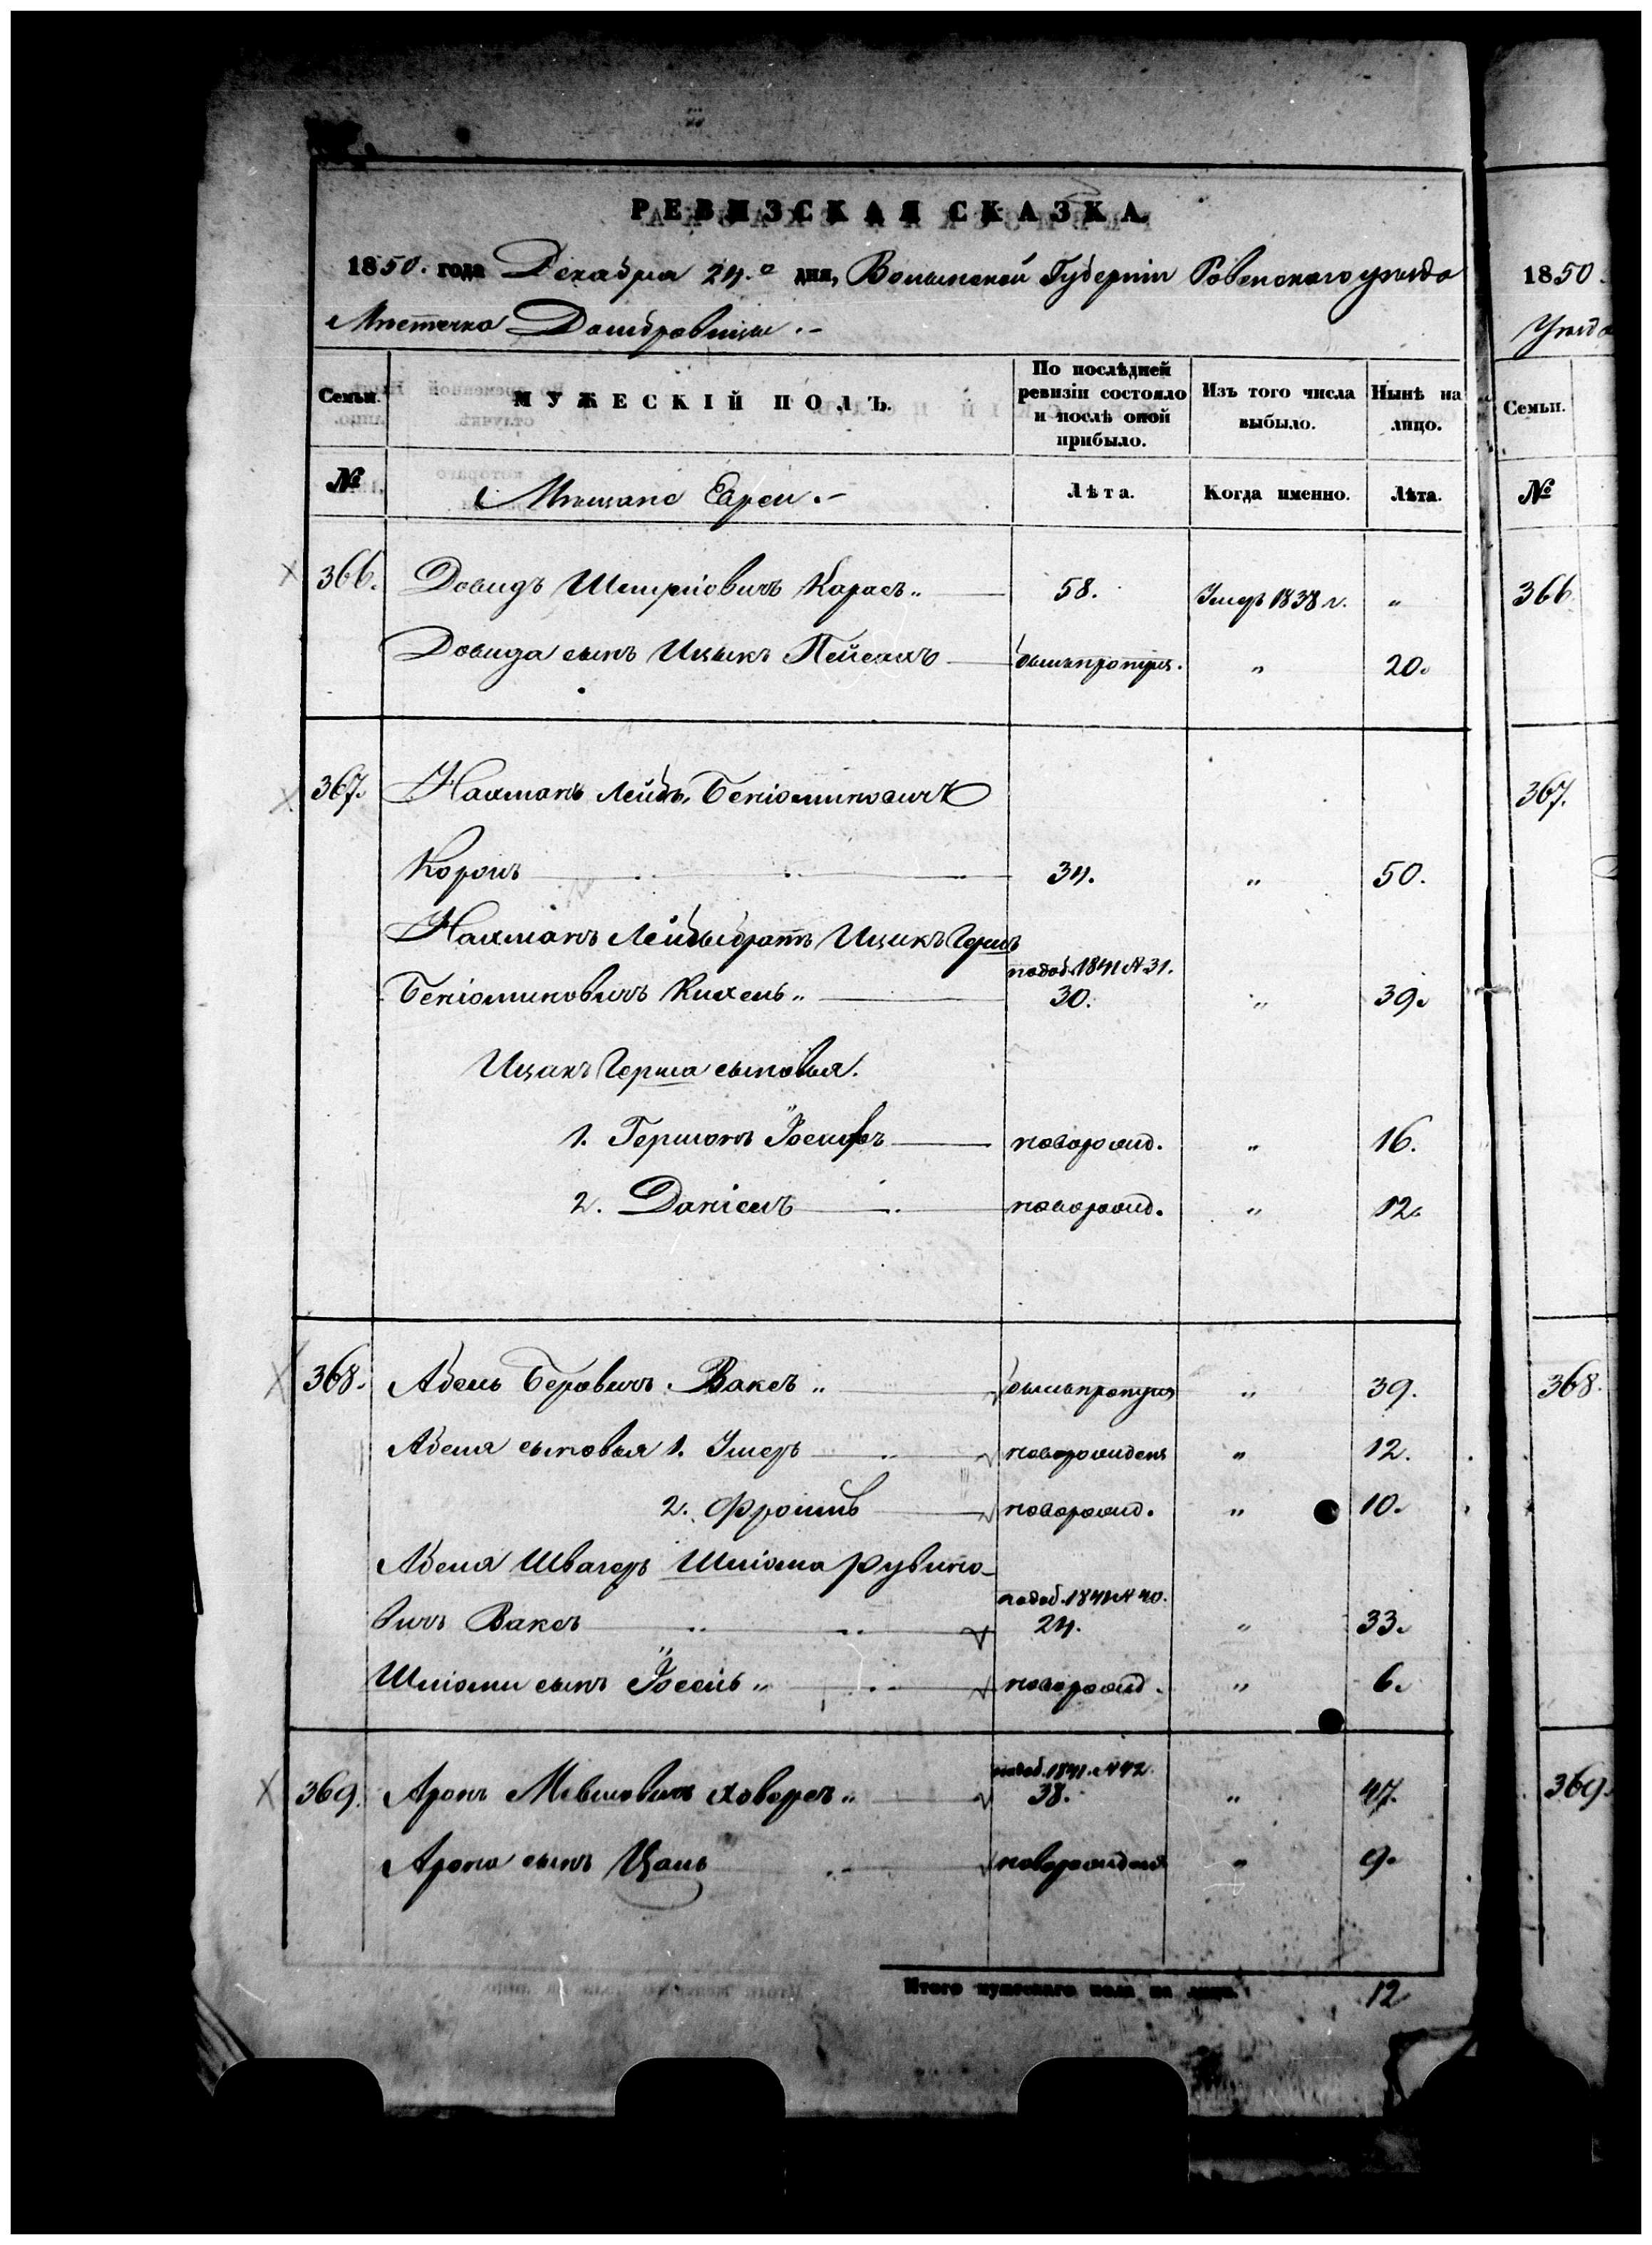 РЕВИЗСКАЯ СКАЗКА.
1850. года Декабря 24.го дня, Волынской Губерніи Ровенскаго уѣзда
Мѣстечка Домбровицы .-
Семьи.
МУЖЕСКІЙ ПОЛЪ.
По послѣдней ревизіи состояло и послѣ оной прибыло.
Изъ того числа выбыло.
Нынѣ на лицо.
№ Мѣщане Евреи.- Лѣта. Когда именно. Лѣта.
366. Довидъ Шмирковичъ Карасъ „ 58. Умеръ 1838 г. „
Довида сынъ Ицыкъ Пейсахъ былъ пропущ. „ 20.
367. Нахманъ Лейбъ Беніоминовичъ
Коропъ 34. „ 50.
Нахманъ Лейбы братъ Ицикъ Гершъ
подоб. 1841 № 31.
Беніоминовичъ Кихель „ 30. „ 39.
Ицикъ Герша сыновья.
1. Гершонъ Іосифъ новорожд. „ 16.
2. Даніелъ новорожд. „ 12.
368. Абель Беровичъ Ваксъ „ былъ пропущ „ 39.
Абеля сыновья 1. Умеръ новорожденъ „ 12.
2. Фроимъ новорожд. „ 10.
Абеля Швагеръ Шліома Рувино-
подоб. 1841 № 40.
вичъ Ваксъ 24. „ 33.
Шліоми сынъ Іосель „ новорожд. „ 6.
подоб. 1841. № 42
369. Аронъ Мевшовичъ Ховерсъ „ 38. „ 47.
Арона сынъ новорожденъ „ 9.
Итого мужескаго пола на лицо. 12
1850.
Уѣзда
Семьи.
№
366.
367.
368.
369.